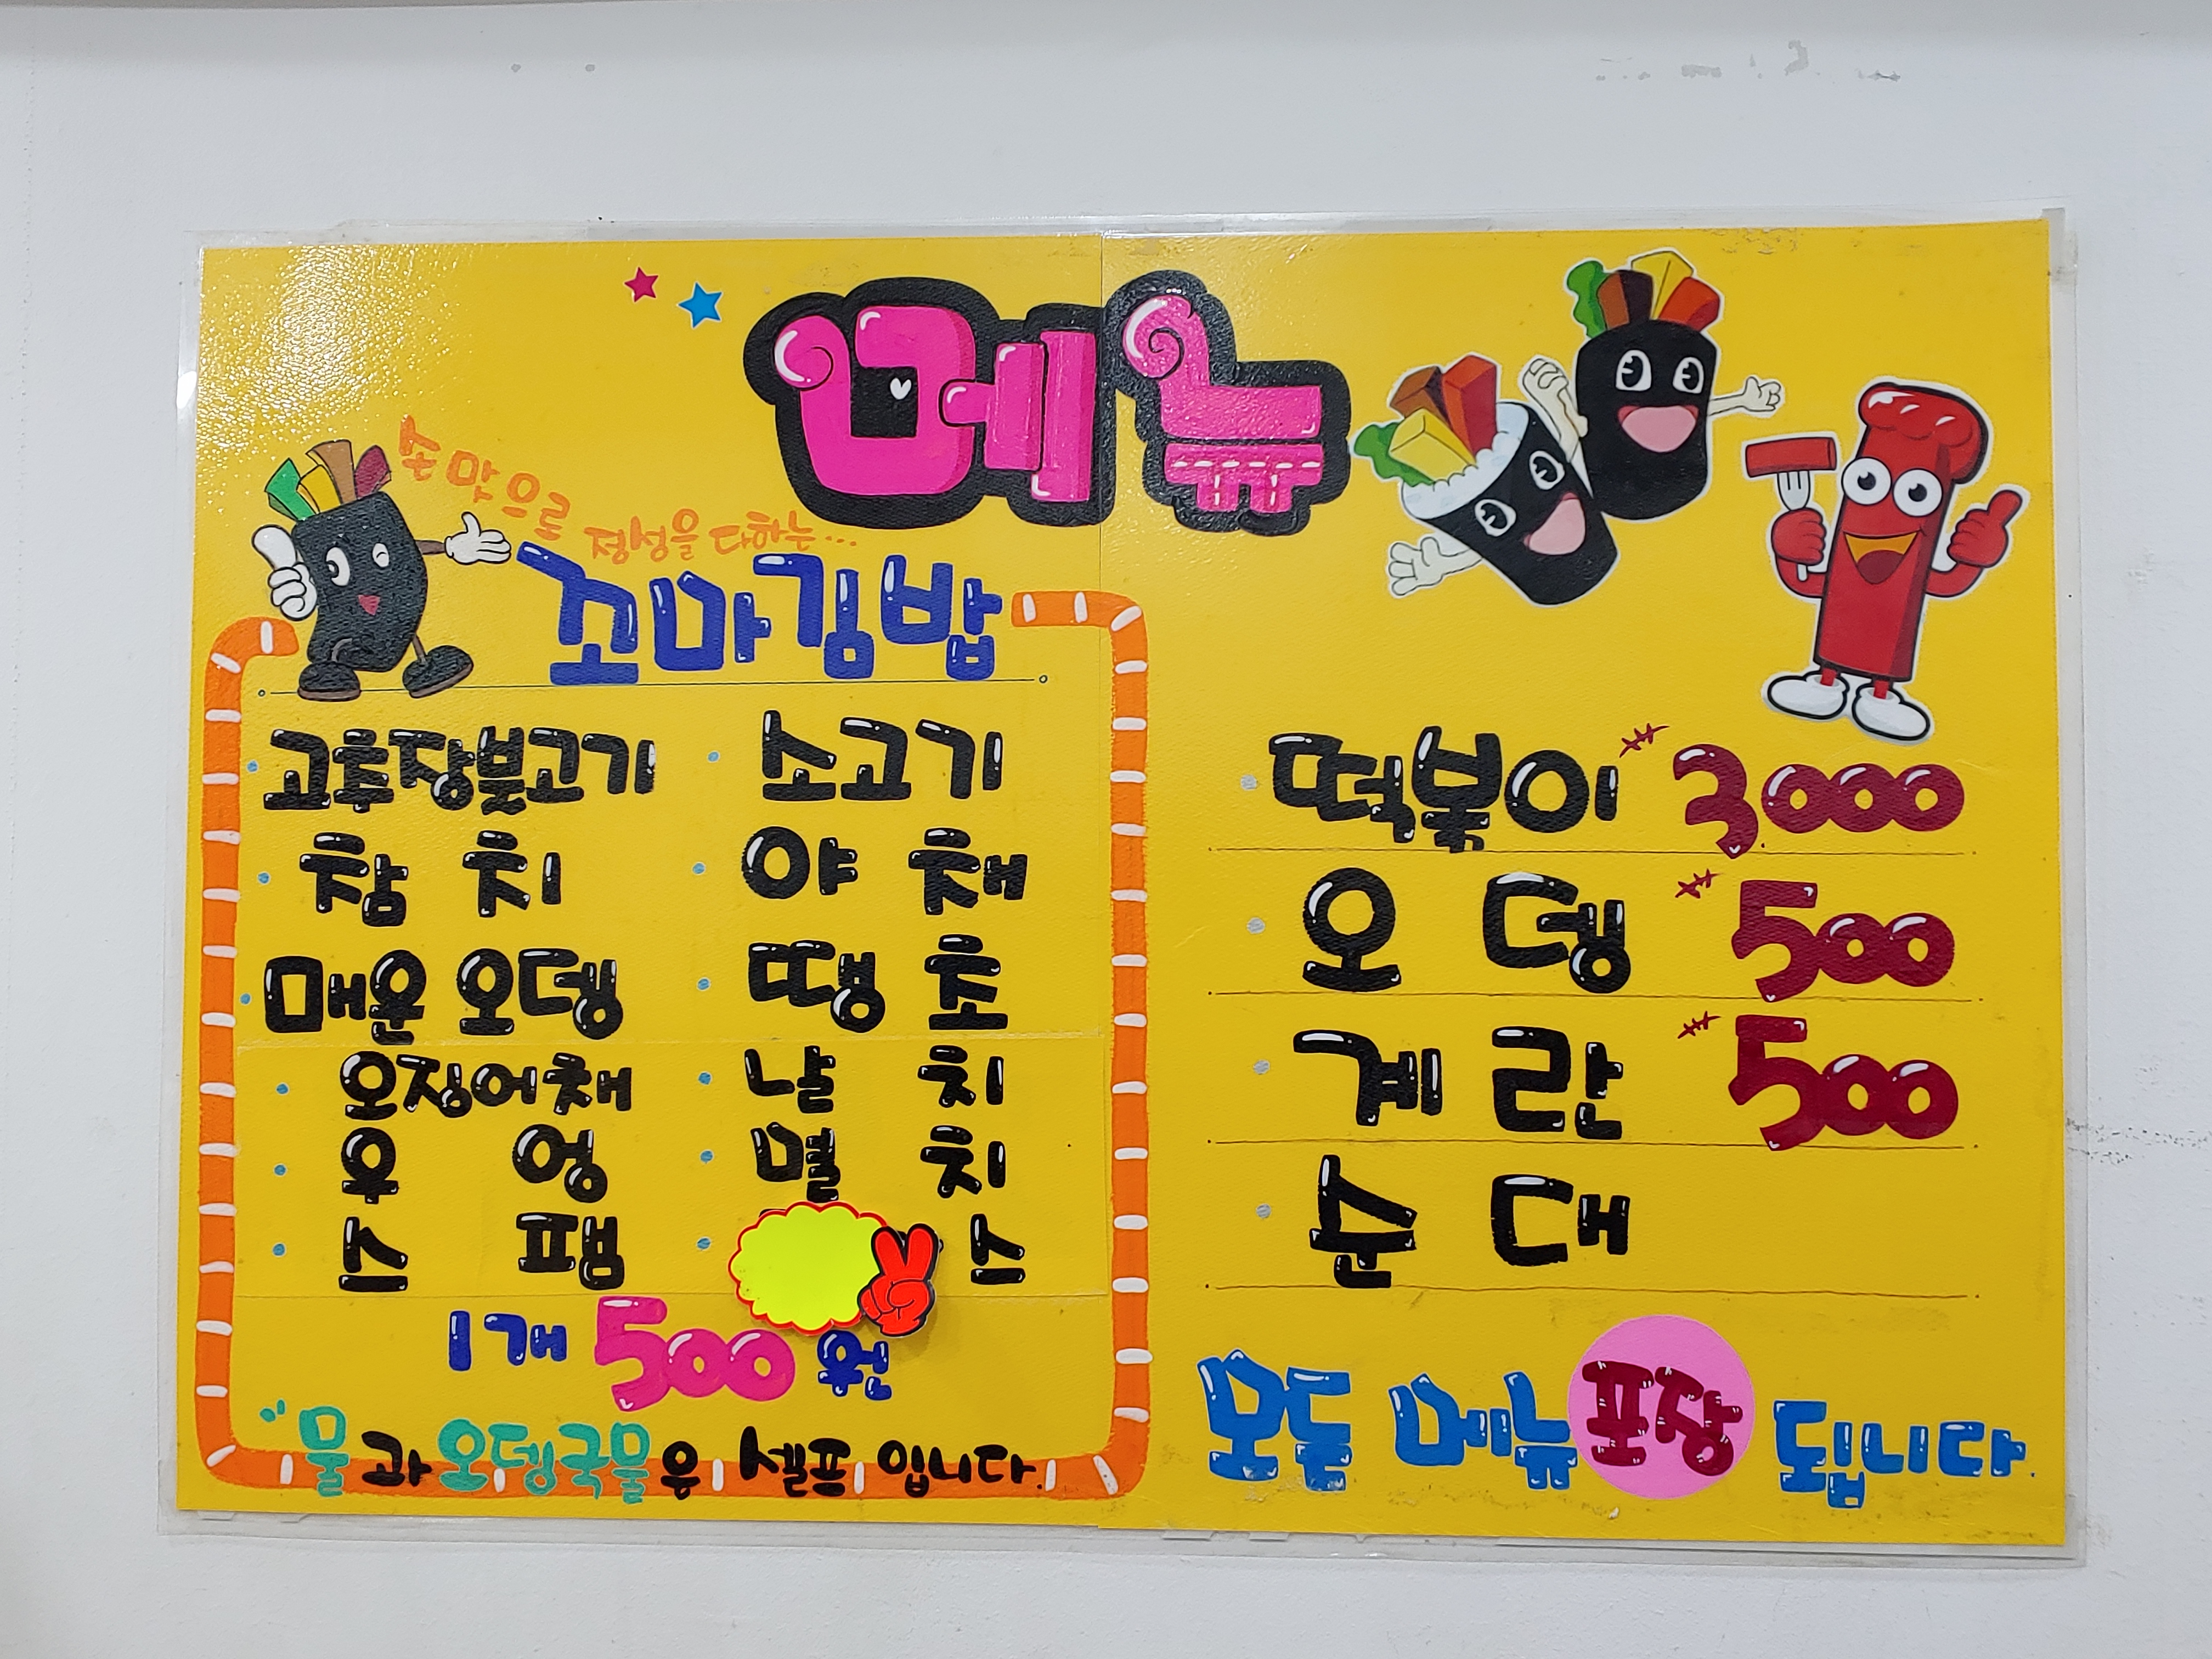 메뉴
손맛으로 정성을 다하는...
꼬마김밥
고추장불고기 소고기
참치 야채
매운오뎅 땡초
오징어채 날치
우엉 멸치
스팸 스
1개 500원
"물과 오뎅국물은 셀프입니다.
떡볶이 3000
오뎅 500
계란 500
순대
모든 메뉴 포장 됩니다.